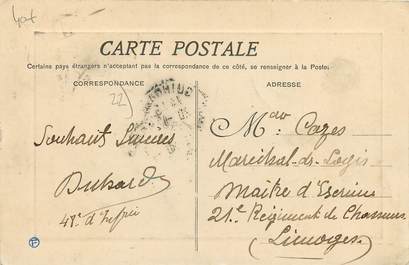 CARTE POSTALE
Certains pays étrangers n'acceptant pas la correspondance de ce côté, se renseigner à la Poste
CORRESPONDANCE
ADRESSE
22
Cazes
Souhaits Sincères
Maréchal-des-Logis
Dubard
Maître d'Escrime
48e d'Infrie
21e Régiment de Chasseurs
(Limoges)